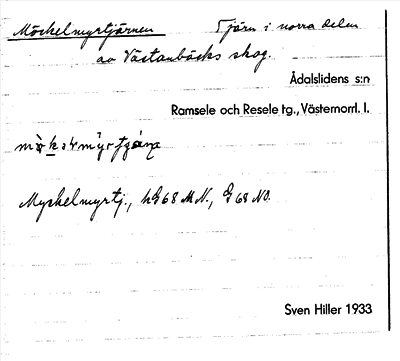 Möckelmyrtjärnen Tjärn i norra delen
av Västanbäcks skog.
Ådalslidens s:n
Ramsele och Resele tg., Västernorrl. l.
Myckelmyrtj.,
Sven Hiller 1933